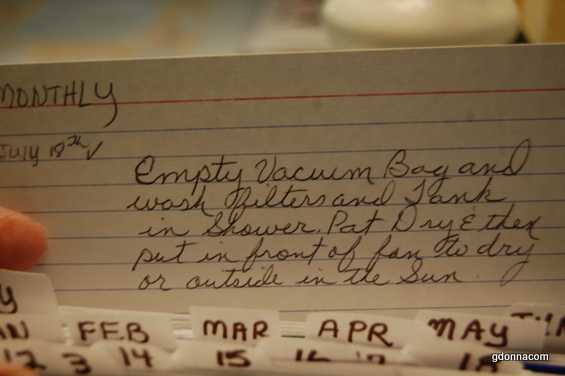 MONTHLY
July 18th ✓
Empty Vacuum Bag and
wash filters and Tank
in Shower. Pat Dry & then
put in front of fan to dry
or outside in the Sun.
FEB MAR APR MAY
12 3 14 15 16 17 18
gdonnacom